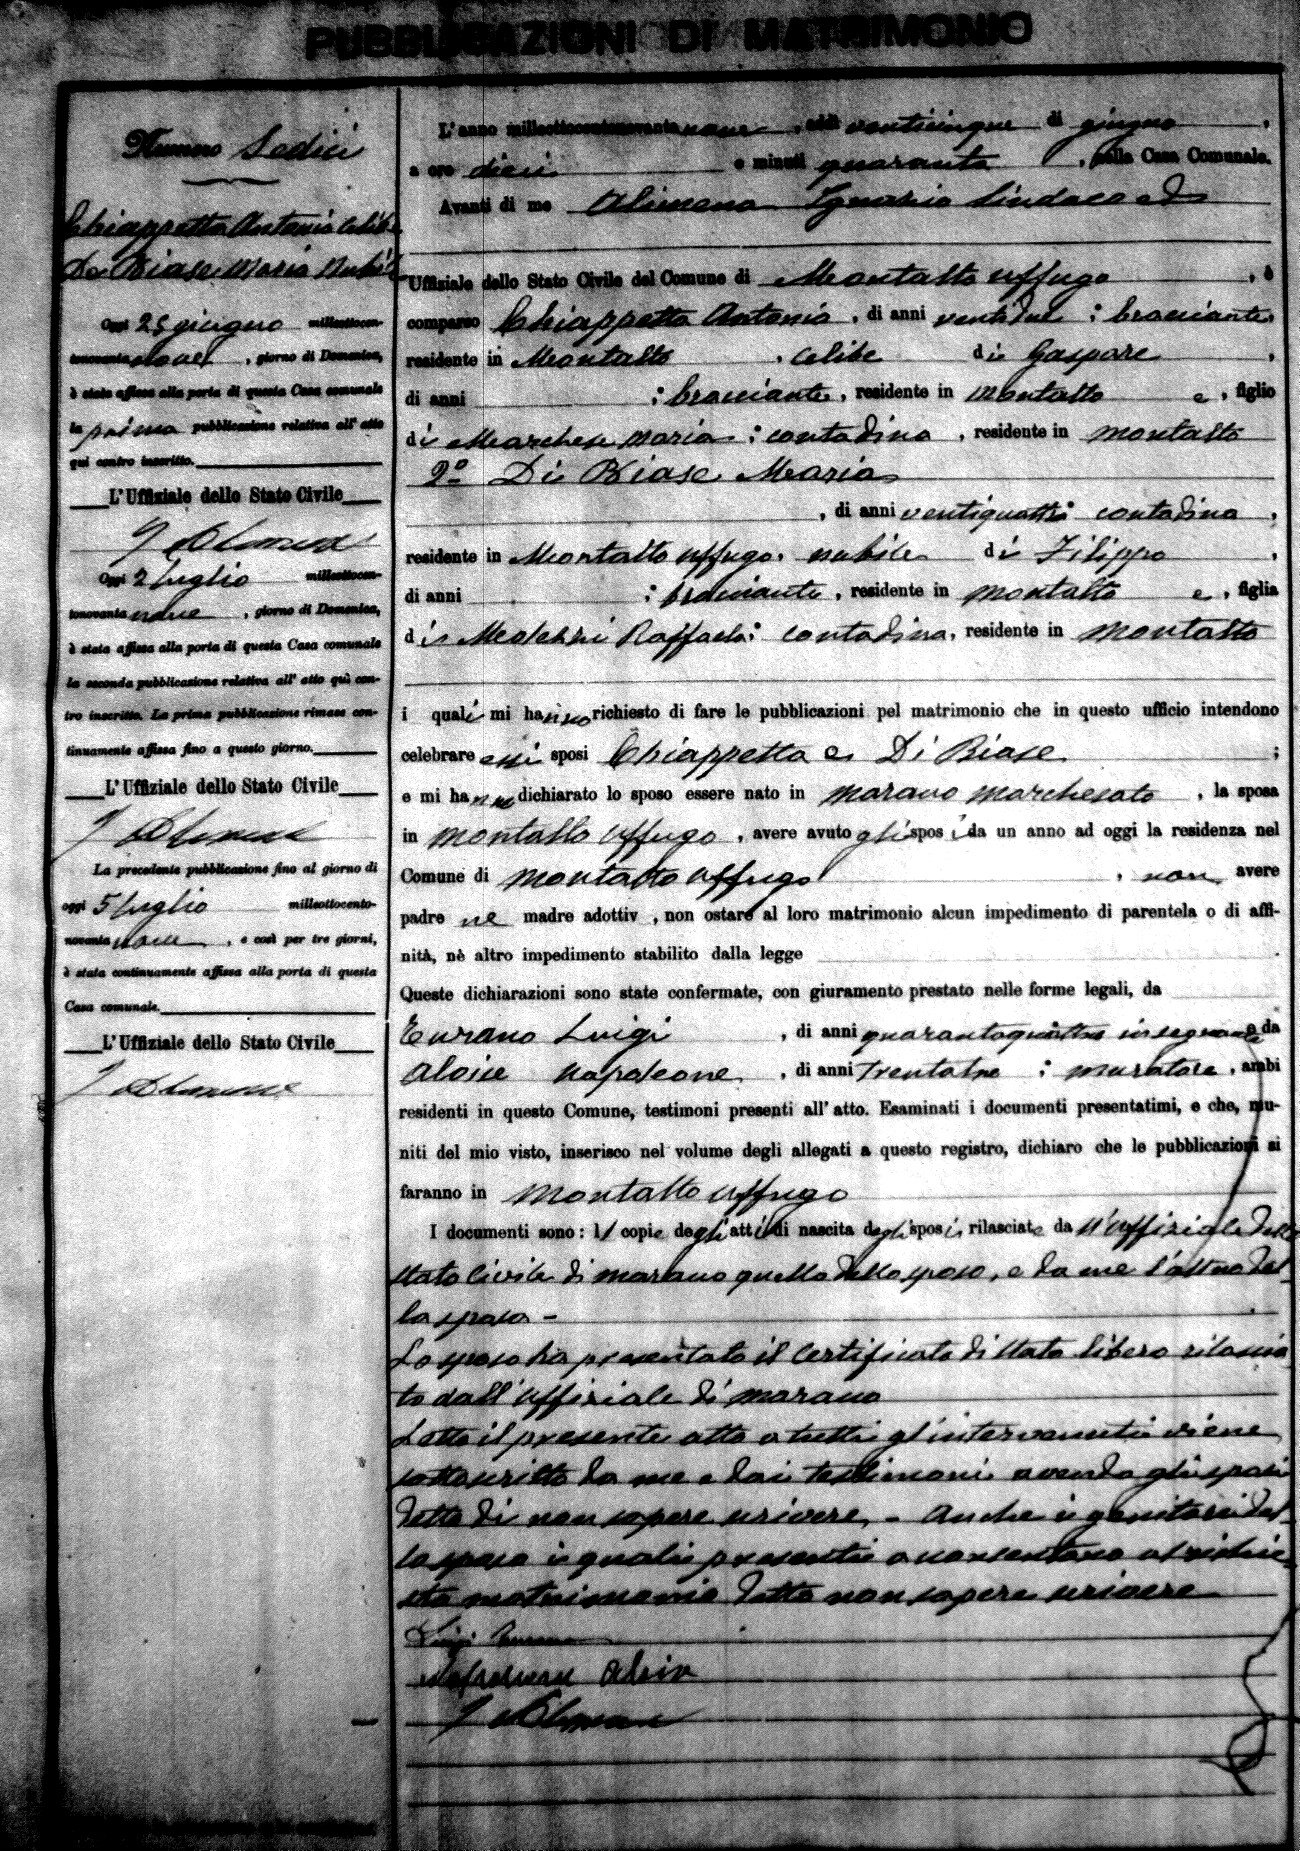 PUBBLICAZIONI DI MATRIMONIO
Numero Sedici
Chiappetta Antonio Celibe
De Biase Maria Nubile
Oggi 25 giugno milleottocen-
tonovantanove, giorno di Domenica,
è stata affissa alla porta di questa Casa comunale
la prima pubblicazione relativa all' atto
qui contro inscritto.
L'Uffiziale dello Stato Civile
Oggi 2 luglio milleottocen-
tonovantanove, giorno di Domenica,
è stata affissa alla porta di questa Casa comunale
la seconda pubblicazione relativa all' atto quì con-
tro inscritto. La prima pubblicazione rimase con-
tinuamente affissa fino a questo giorno.
L'Uffiziale dello Stato Civile
La precedente pubblicazione fino al giorno di
oggi 5 luglio milleottocento-
novantanove, e così per tre giorni,
è stata continuamente affissa alla porta di questa
Casa comunale.
L'Uffiziale dello Stato Civile
L'anno milleottocentonovantanove, addì venticinque di giugno,
a ore dieci e minuti quaranta, nella Casa Comunale.
Avanti di me Alimena Ignazio Sindaco ed
Uffiziale dello Stato Civile del Comune di Montalto Uffugo, è
comparso Chiappetta Antonio, di anni ventidue; bracciante,
residente in Montalto, celibe di Gaspare,
di anni ; bracciante, residente in Montalto e, figlio
di Marchese Maria; contadina, residente in Montalto
2º Di Biase Maria
, di anni ventiquattro; contadina,
residente in Montalto Uffugo, nubile di Filippo,
di anni ; bracciante, residente in Montalto e, figlia
di Raffaela; contadina, residente in Montalto
i quali mi hanno richiesto di fare le pubblicazioni pel matrimonio che in questo ufficio intendono
celebrare essi sposi Chiappetta e Di Biase;
e mi hanno dichiarato lo sposo essere nato in Marano Marchesato, la sposa
in Montalto Uffugo, avere avuto gli sposi da un anno ad oggi la residenza nel
Comune di Montalto Uffugo, non avere
padre ne madre adottiv , non ostare al loro matrimonio alcun impedimento di parentela o di affi-
nità, nè altro impedimento stabilito dalla legge
Queste dichiarazioni sono state confermate, con giuramento prestato nelle forme legali, da
Turano Luigi, di anni quarantaquattro insegnante e da
Aloise Napoleone, di anni trentatre; muratore, ambi
residenti in questo Comune, testimoni presenti all' atto. Esaminati i documenti presentatimi, e che, mu-
niti del mio visto, inserisco nel volume degli allegati a questo registro, dichiaro che le pubblicazioni si
faranno in Montalto Uffugo
I documenti sono: 1/ copie degli atti di nascita degli sposi rilasciate da l'uffiziale dello
stato Civile di Marano quella dello sposo, e da me l'altra del-
la sposa -
Lo sposo ha presentato il Certificato di stato libero rilascia
to dall'uffiziale di Marano
Letto il presente atto a tutti gl'intervenuti viene
sottoscritto da me e dai testimoni avendo gli sposi
detto di non sapere scrivere. - Anche i genitori del-
la sposa i quali presenti acconsentono al richie-
sto matrimonio detto non sapere scrivere
Luigi Turano
Napoleone Aloise